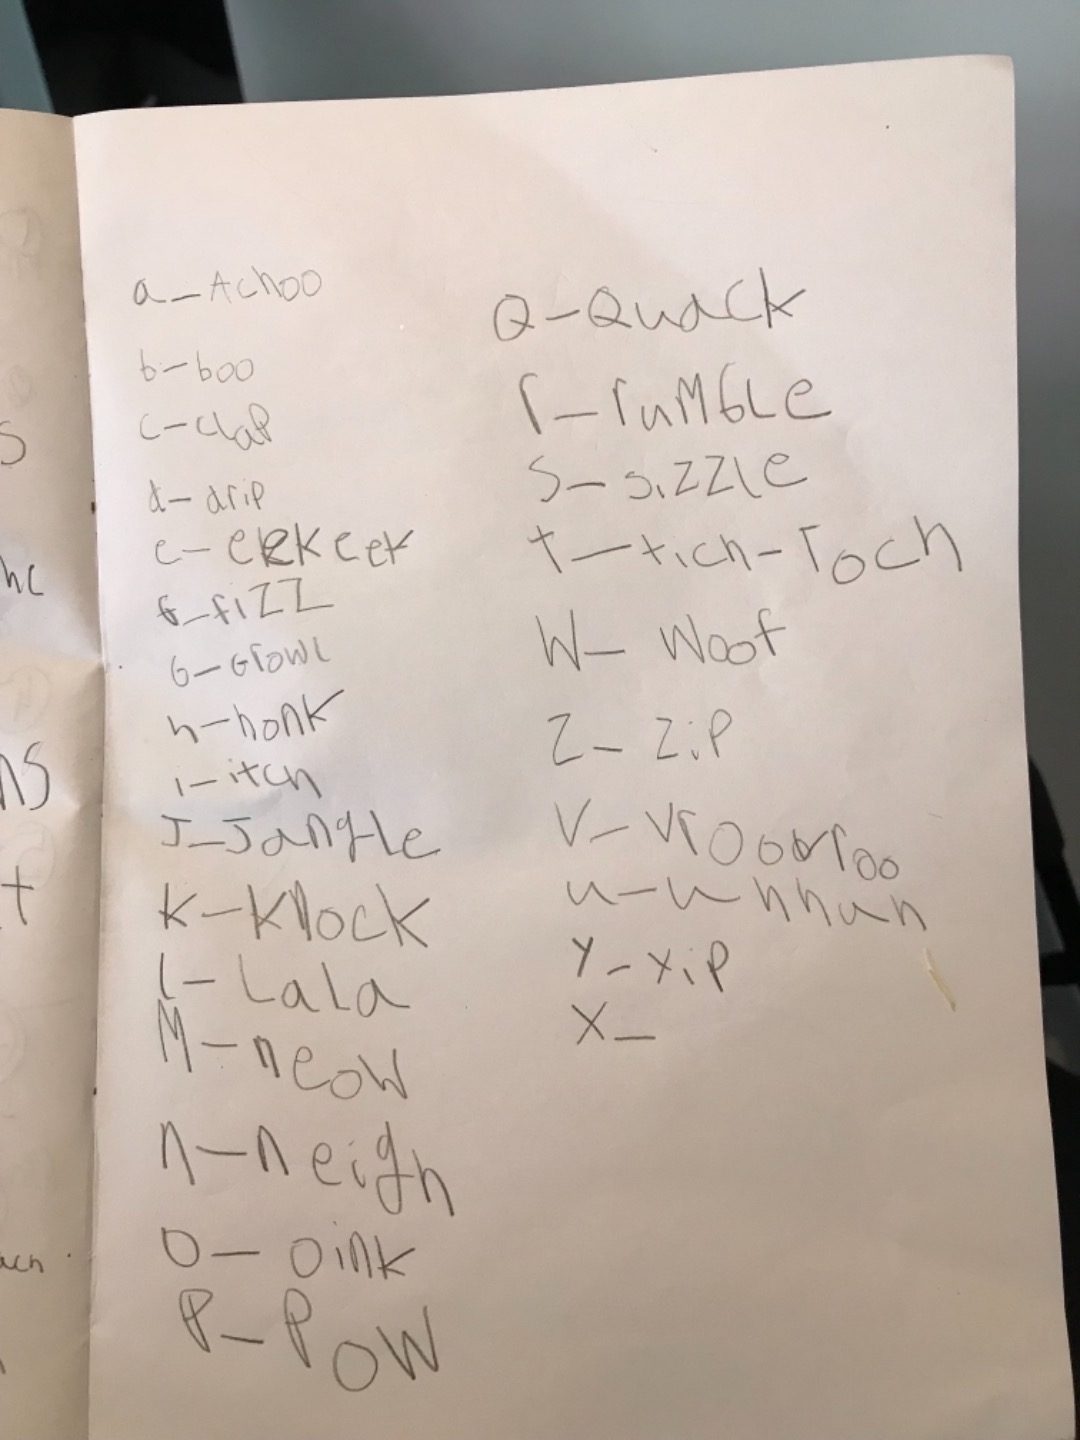 s
hc
ns
t
ach
a - Achoo
b - boo
c - claP
d - drip
e - eekeek
f - fiZZ
G - GrowL
h - honk
i - itch
J - Jangle
K - Knock
l - LaLa
M - neow
n - neigh
O - oink
P - Pow
Q - Quack
r - rumbLe
S - sizzle
t - tich - roch
W - Woof
Z - ziP
V - Vroooroo
u - uhhuh
Y - xiP
X -